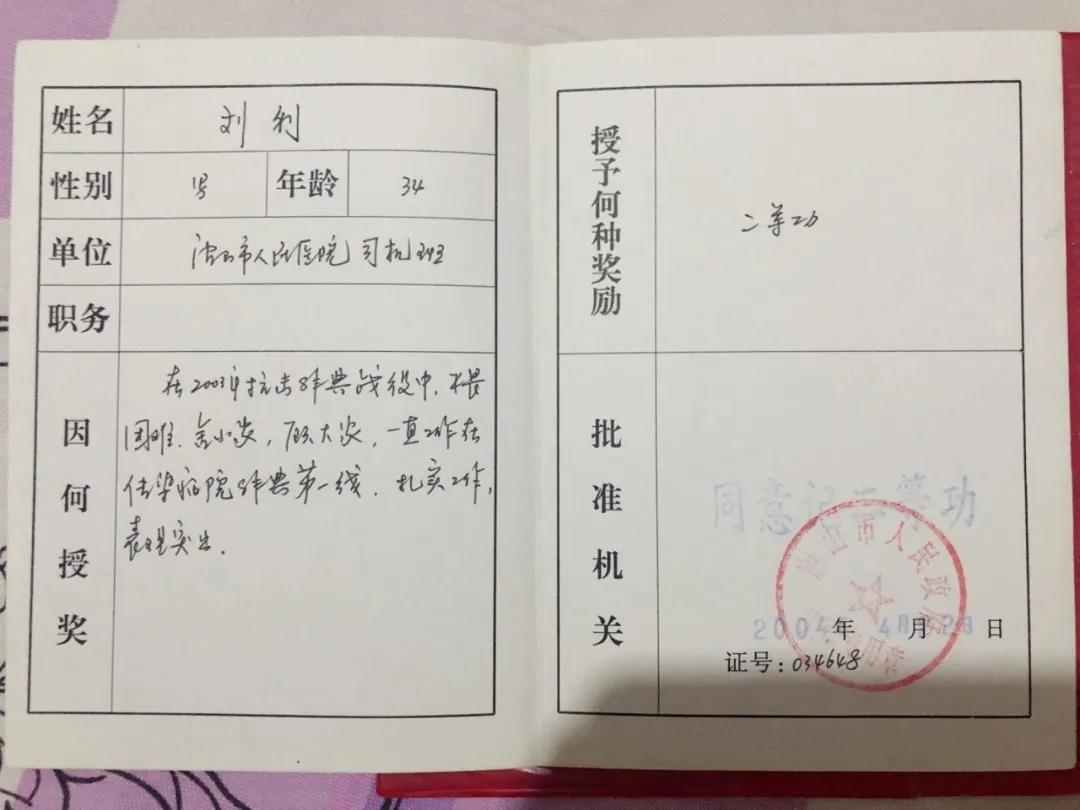 姓名 刘利
性别 男 年龄 34
单位 市人民医院司机班
职务
因何授奖
在2003年抗击非典战役中，不畏
困难，舍小家，顾大家，一直工作在
传染病院非典第一线，扎实工作，
表现突出.
授予何种奖励
二等功
批准机关
同意记二等功
山市人民政府
2004年 4月 28日
证号:034648